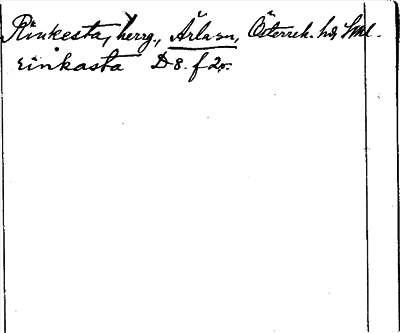 Rinkesta, herrg., Ärla sn, Österrek. hd, Sml.
rinkasta D 8. f 2v.